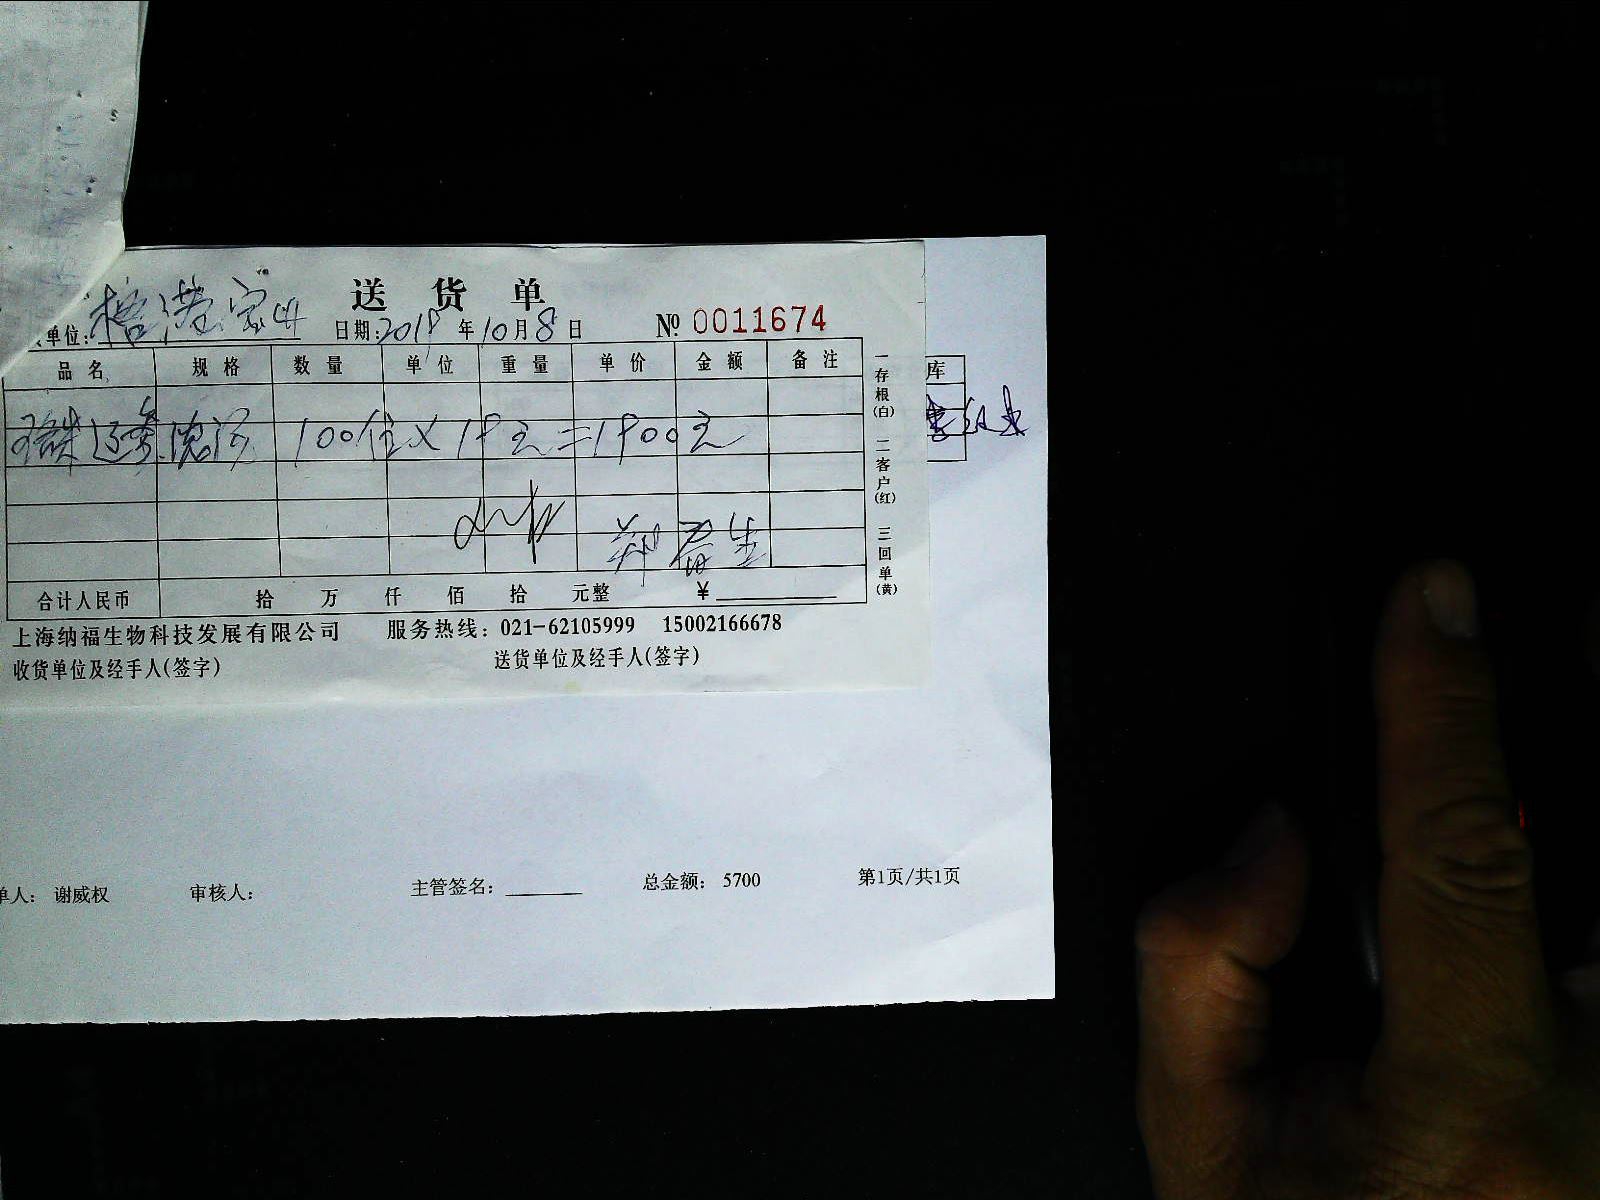 送货单
单位:
日期:2018年10月8日 № 0011674
品名 规格 数量 单位 重量 单价 金额 备注
100位×19元=1900元
合计人民币 拾 万 仟 佰 拾 元整 ¥
一存根(白) 二客户(红) 三回单(黄)
库
上海纳福生物科技发展有限公司 服务热线:021-62105999 15002166678
收货单位及经手人(签字) 送货单位及经手人(签字)
单人: 谢威权 审核人: 主管签名: 总金额: 5700 第1页/共1页